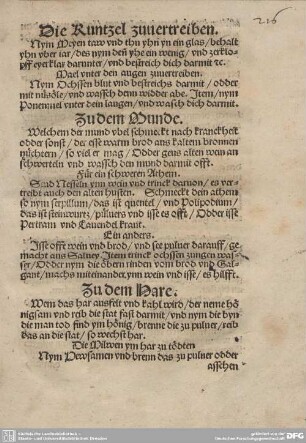 216
Die Kuntzel zuuertreiben.
Nym Meyen taw vnd thu yhn yn ein glas/ behalt
yhn vber iar/ des nym deñ yhe ein wenig/ vnd zerklo-
pff eyerklar darunter/ vnd bestreich dich darmit ⁊c.
Mael vnter den augen zuuertreiben.
Nym Ochssen blut vnd bestreichs darmit/ odder
mit nüzöle/ vnd wassch denn widder abe. Item/ nym
vnter dein laugen/ vnd wasch dich darmit.
Zu dem Munde.
Welchem der mund vbel schmeckt nach kranckheit
odder sonst/ der esse warm brod aus kaltem bronnen
nüchtern/ so viel er mag/ Odder geus alten wein an
schwerteln vnd wassch den mund darmit offt.
Für ein schweren Athem.
Seud Nesseln ym wein vnd trinck daruon/ es ver-
treibt auch den alten husten. Schmeckt dein athem
so nym serpillum/ das ist quentel/ vnd Polipodium/
das ist steinwurtz/ püluers vnd isse es offt/ Odder isse
Pertram vnd Lauendel kraut.
Ein anders.
Isse offt wein vnd brod/ vnd see puluer darauff/ ge-
macht aus Saluey. Item trinck ochssen zungen was-
ser/ Odder nym die öbern rinden vom brod vnd Gal-
gant/ machs miteinander ynn wein vnd isse/ es hilfft.
Zu dem Hare.
Wem das har ausfelt vnd kahl wird/ der neme hö
nigsam vnd reib die stat fast darmit/ vnd nym die byn
die man tod find ym hönig/ brenne die zu puluer/ reib
das an die stat/ so wechst har.
Die Milwen ym har zu tödten
Nym Hewsamen vnd brenn das zu puluer odder
asschen